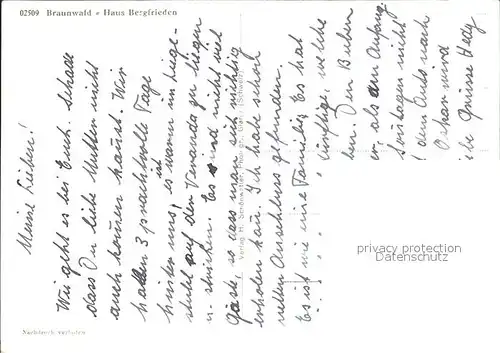 02509 Braunwald - Haus Bergfrieden
Meine Lieben!
Wie geht es bei Euch. Schade
dass Du liebe Mutter nicht
auch kommen kannst. Wir
haben 3 prachtvolle Tage
hinter uns, es ist warm im Liege-
stuhl auf der Veranda zu liegen
u. stricken. Es sind nicht viel
Gäste, so dass man sich richtig
erholen kann. Ich habe schon
netten Anschluss gefunden
Es ist wie eine Familie, Es hat
künftige, welche
Den Buben
er, als am Anfang
Sonntagen nicht
dem Auto nach
Oskar wird
Grüsse Hedy
Verlag H. Schönwetter, Photogr., Glarus (Schweiz)
Nachdruck verboten
privacy protection
Datenschutz